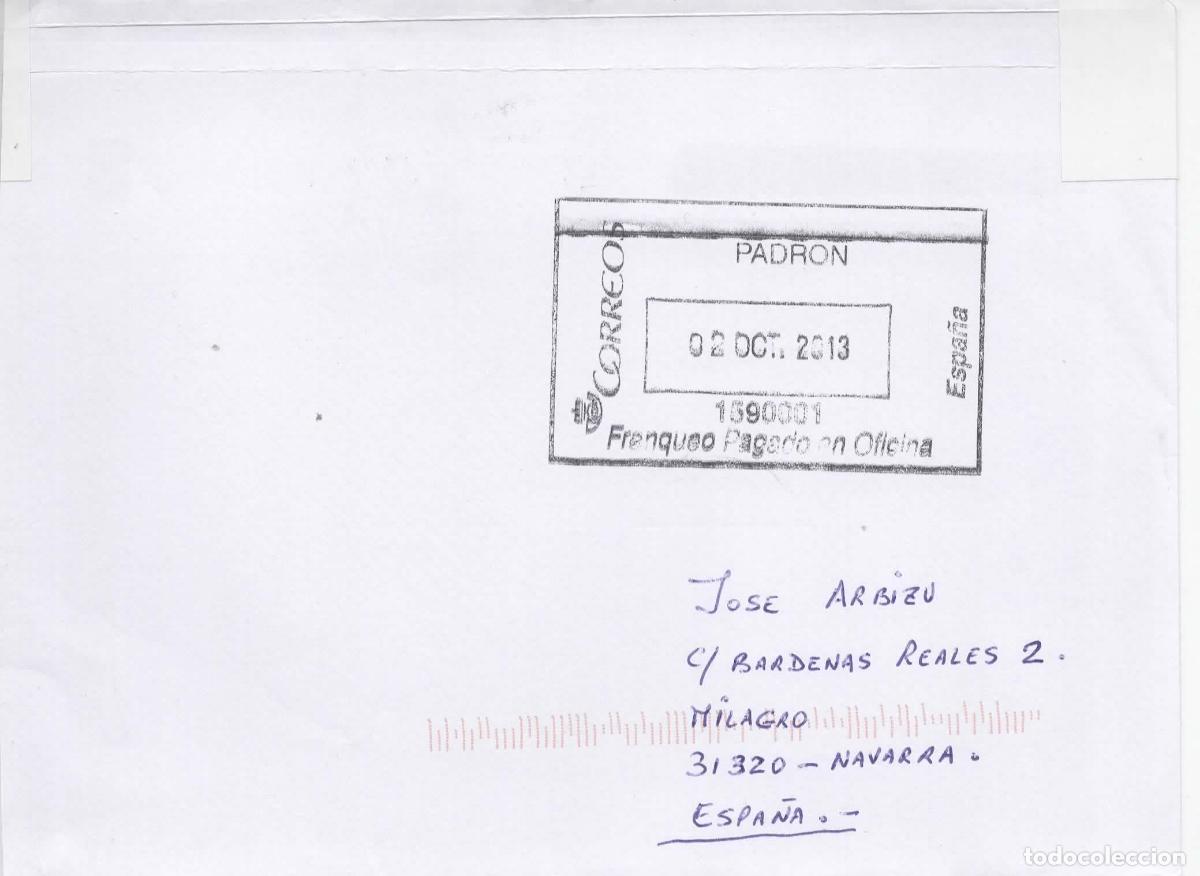 CORREOS
PADRON
02 OCT. 2013
1590001
Franqueo Pagado en Oficina
España
JOSE ARBIZU
C/ BARDENAS REALES 2.
MILAGRO
31320 - NAVARRA.
ESPAÑA. -
todocoleccion